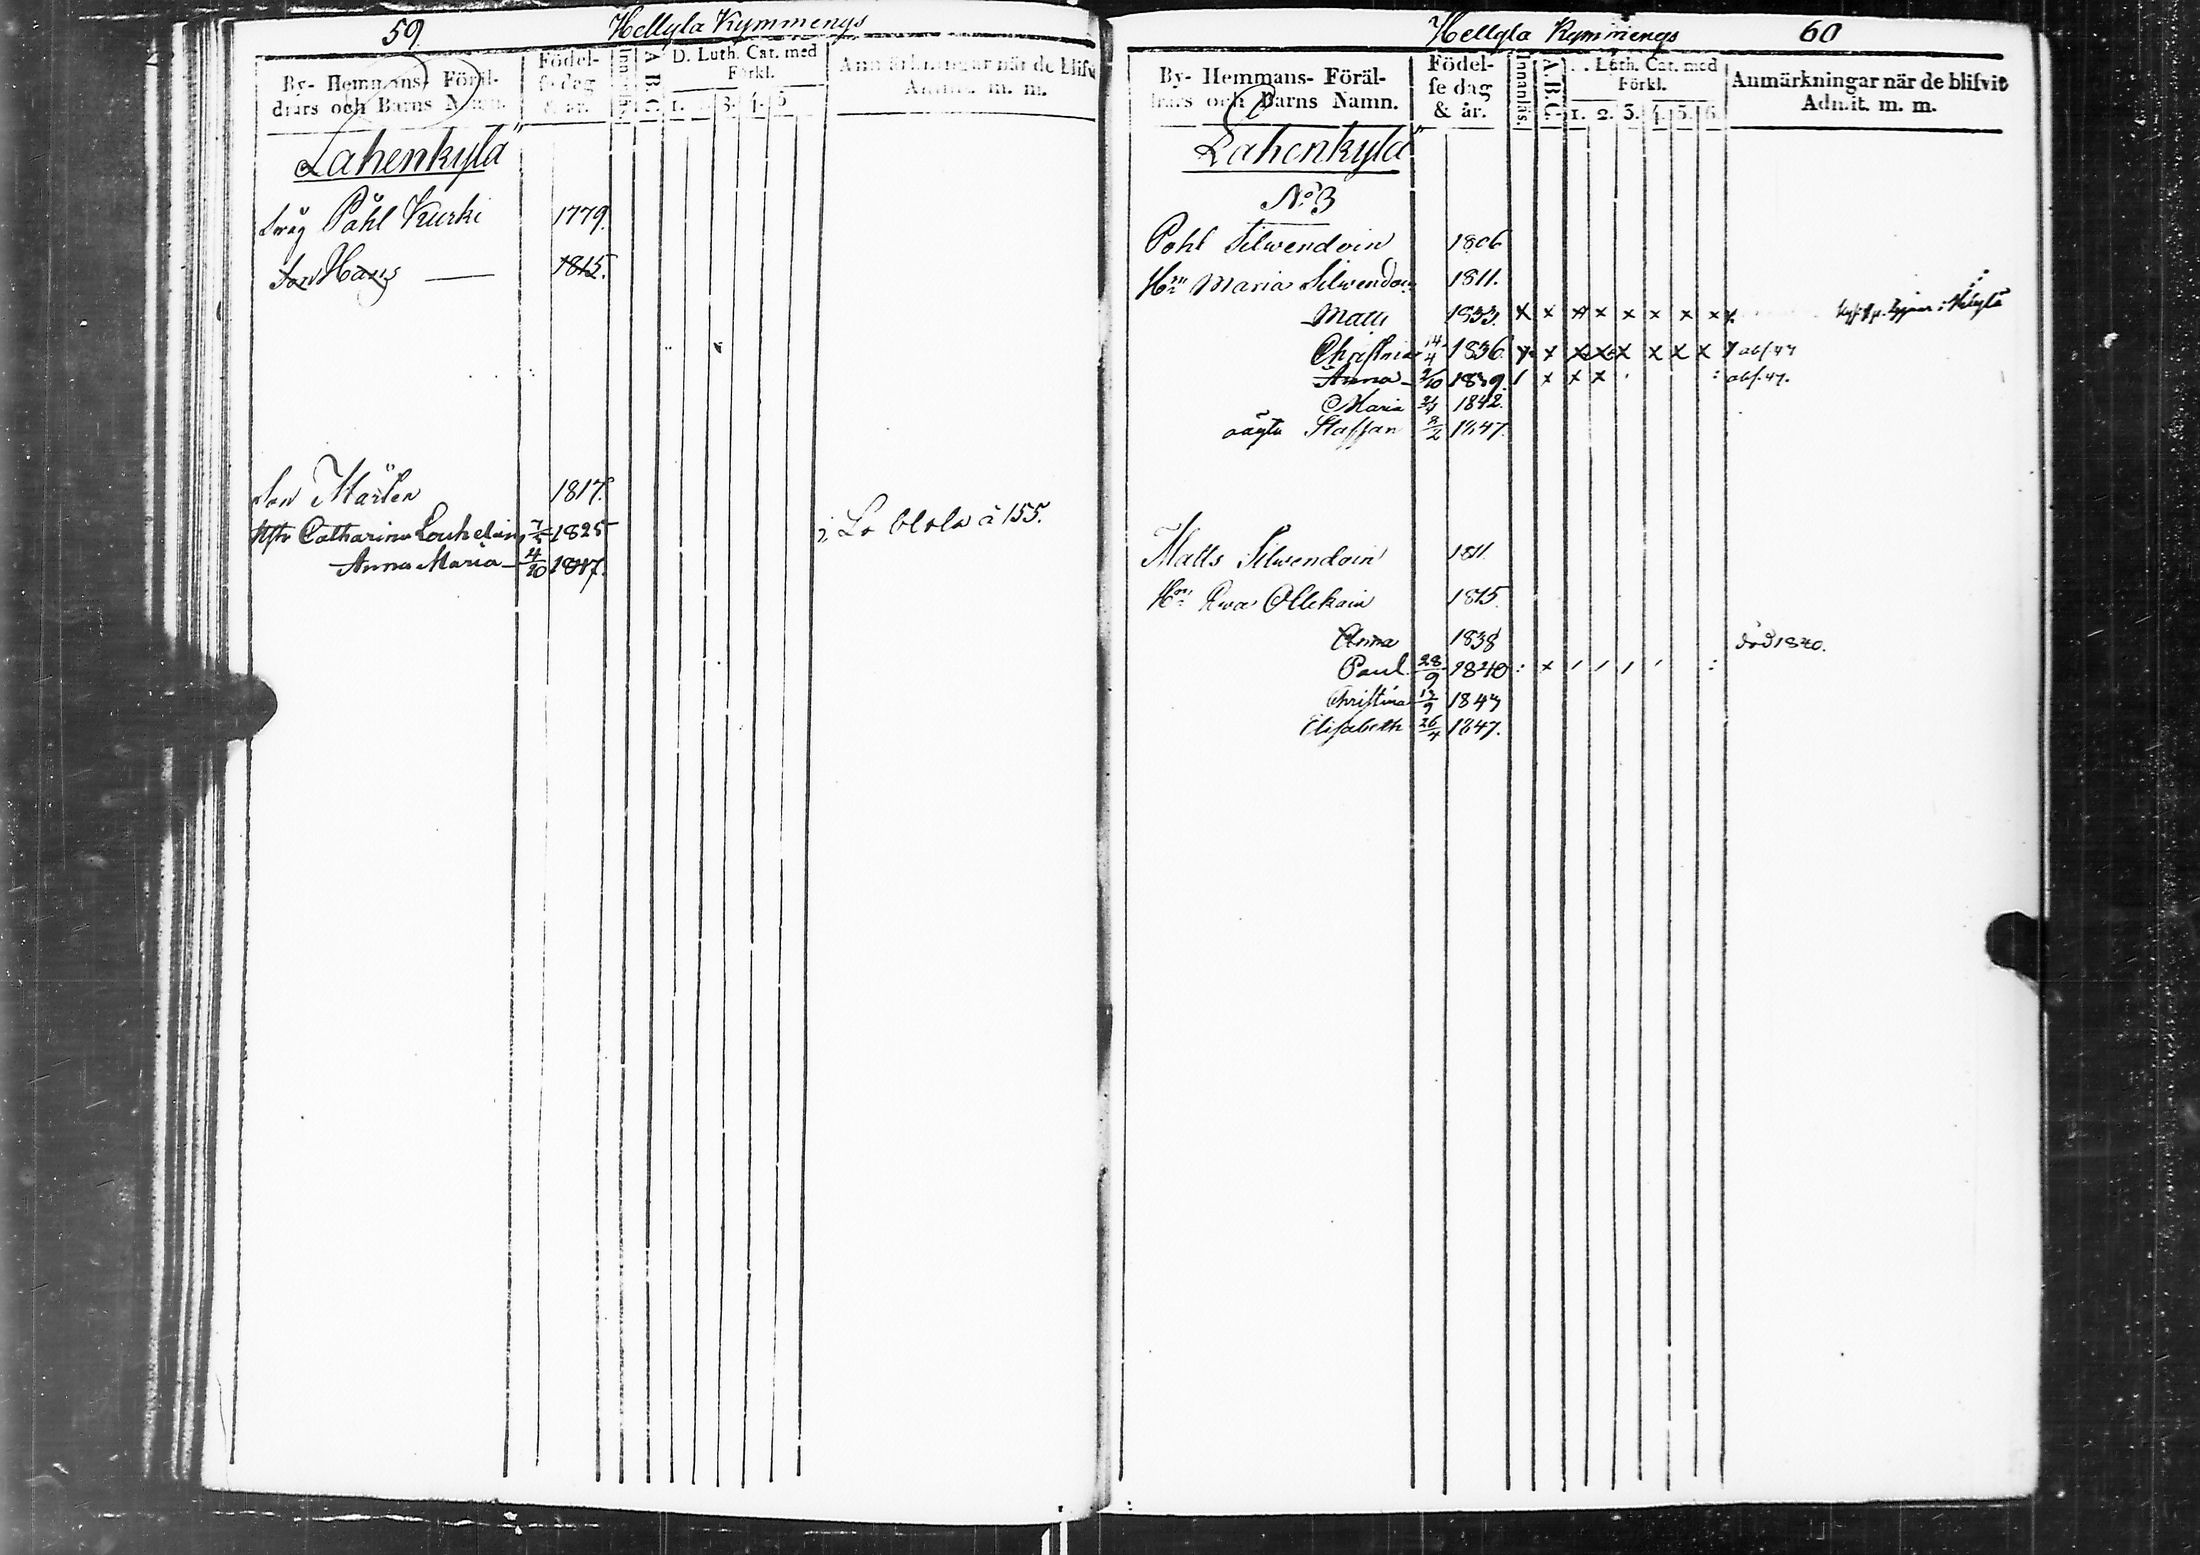 59.
Hellyla Kymmengs
By- Hemmans- Föräl-
drars och Barns Namn.
Födel-
se dag
& år.
A.B.C.
D. Luth. Cat. med
Förkl.
1. 3. 4. 5
Anmärkningar när de blifvit
Admit. m. m.
Lahenkylä
Swåg Påhl Kurki 1779.
Son Hans — 1815.
Son Mårten 1817.
Hstr Catharina Louhelain 1825
i Lo blola à 155.
Anna Maria 4/10 1847.
Hellyla Kymmengs
60
By- Hemmans- Föräl-
drars och Barns Namn.
Födel-
se dag
& år.
Innanläs.
A.B.C.
D. Luth. Cat. med
Förkl.
1. 2. 3. 4. 5. 6.
Anmärkningar när de blifvit
Admit. m. m.
Lahenkylä
No 3
Pohl Silwendoin 1806
Hn Maria Silwendoin 1811.
Mary 1833. x x x x x x x x
Christina 14/4 1836. x x x x x x x x abs. 47
Anna 2/10 1839. / x x x abs. 47.
Maria 1842.
oägta Staffan 2/2 1847.
Matts Silwendoin 1811
Hn Ewa Ollikain 1815.
Anna 1838 död 1840.
Paul 28/9 1840 : x / / / / :
Christina 1843
Elisabeth 26/4 1847.